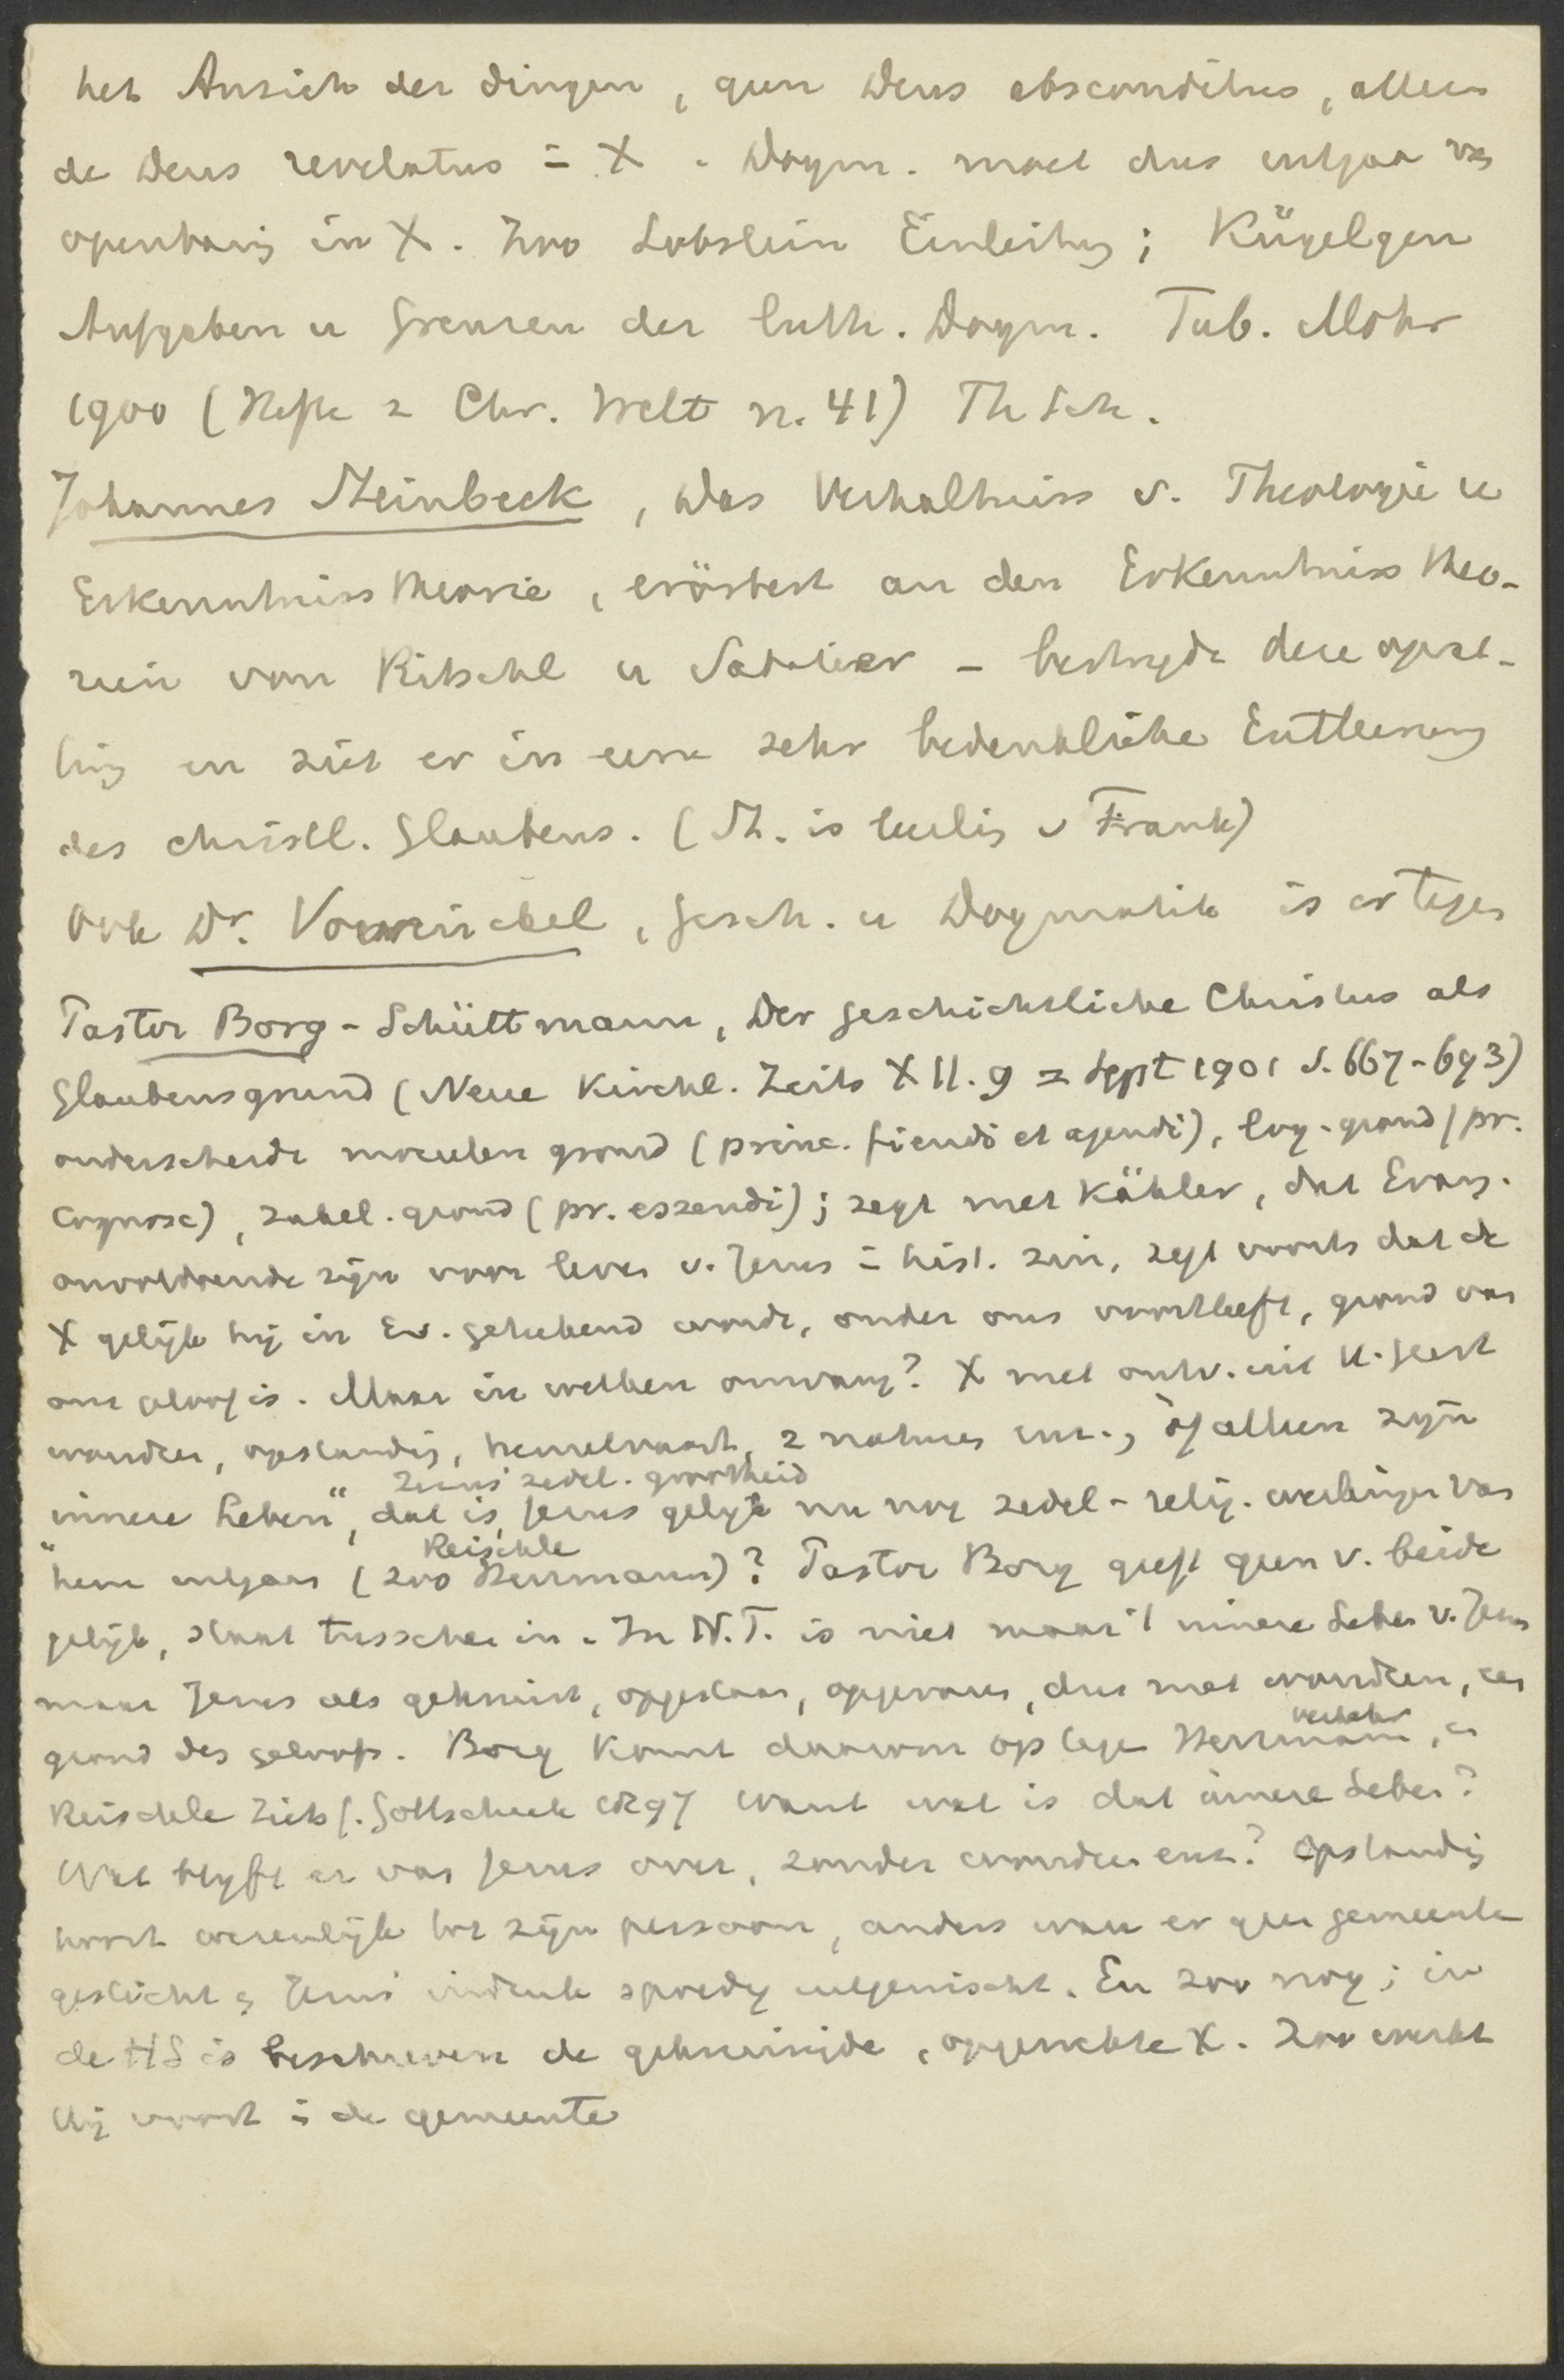 het Ansich der dingen, geen Deus absconditus, alleen
de Deus revelatus = X. Dogm. moet dus uitgaan van
openbaring in X. Zoo Lobstein Einleitung; Kügelgen
Aufgaben u Grenzen der luth. Dogm. Tub. Mohr
1900 (Hefte z Chr. Welt n. 41) Th Sch.
Johannes Steinbeck, Das Verhaltniss v. Theologie u
Erkenntnisstheorie, erörtert an den Erkenntniss theo-
rien von Ritschl u Sabatier - bestrijdt deze opvat-
ting en ziet er in eene sehr bedenkliche Entleerung
des christl. Glaubens. (St. is leerling v Frank)
Ook Dr. Vowinckel, Gesch. u Dogmatik is er tegen
Pastor Borg-Schüttmann, Der geschichtliche Christus als
Glaubensgrund (Neue Kirchl. Zeits XII. 9 = Sept 1901 S. 667-693)
onderscheidt moreelen grond (princ. fiendi et agendi), log. grond (pr.
cognosc), zakel. grond (pr. essendi); zegt met Kähler, dat Evang.
onvoldoende zijn voor leven v. Jezus = hist. zin, zegt voorts dat de
X gelijk hij in Ev. getekend wordt, onder ons voortleeft, grond van
ons geloof is. Maar in welken omvang? X met ontv. uit H. Geest
wonderen, opstanding, hemelvaart, 2 naturen enz., óf alleen zijn
Jezus' zedel. grootheid
innere Leben", dat is, Jezus gelijk nu nog zedel-relig. werkingen van
Reischle
"hem uitgaan (zoo Herrmann)? Pastor Borg geeft geen v. beide
gelijk, staat tusschen in. In N.T. is niet maar 't innere Leben v. Jezus
maar Jezus als gekruist, opgestaan, opgevaren, dus met wonderen, een
Verkehr
grond des geloofs. Borg komt daarom op tegen Herrmann, en
Reischle Zeits f. Gottschick 1897 want wat is dat innere Leben?
Wat blijft er van Jezus over, zonder wonderen enz? Opstanding
hoort wezenlijk tot zijn persoon, anders ware er geen gemeente
gesticht & Jezus' indruk spoedig uitgewischt. En zoo nog; in
de HS is beschreven de gekruisigde, opgewekte X. Zoo werkt
Hij voort = de gemeente